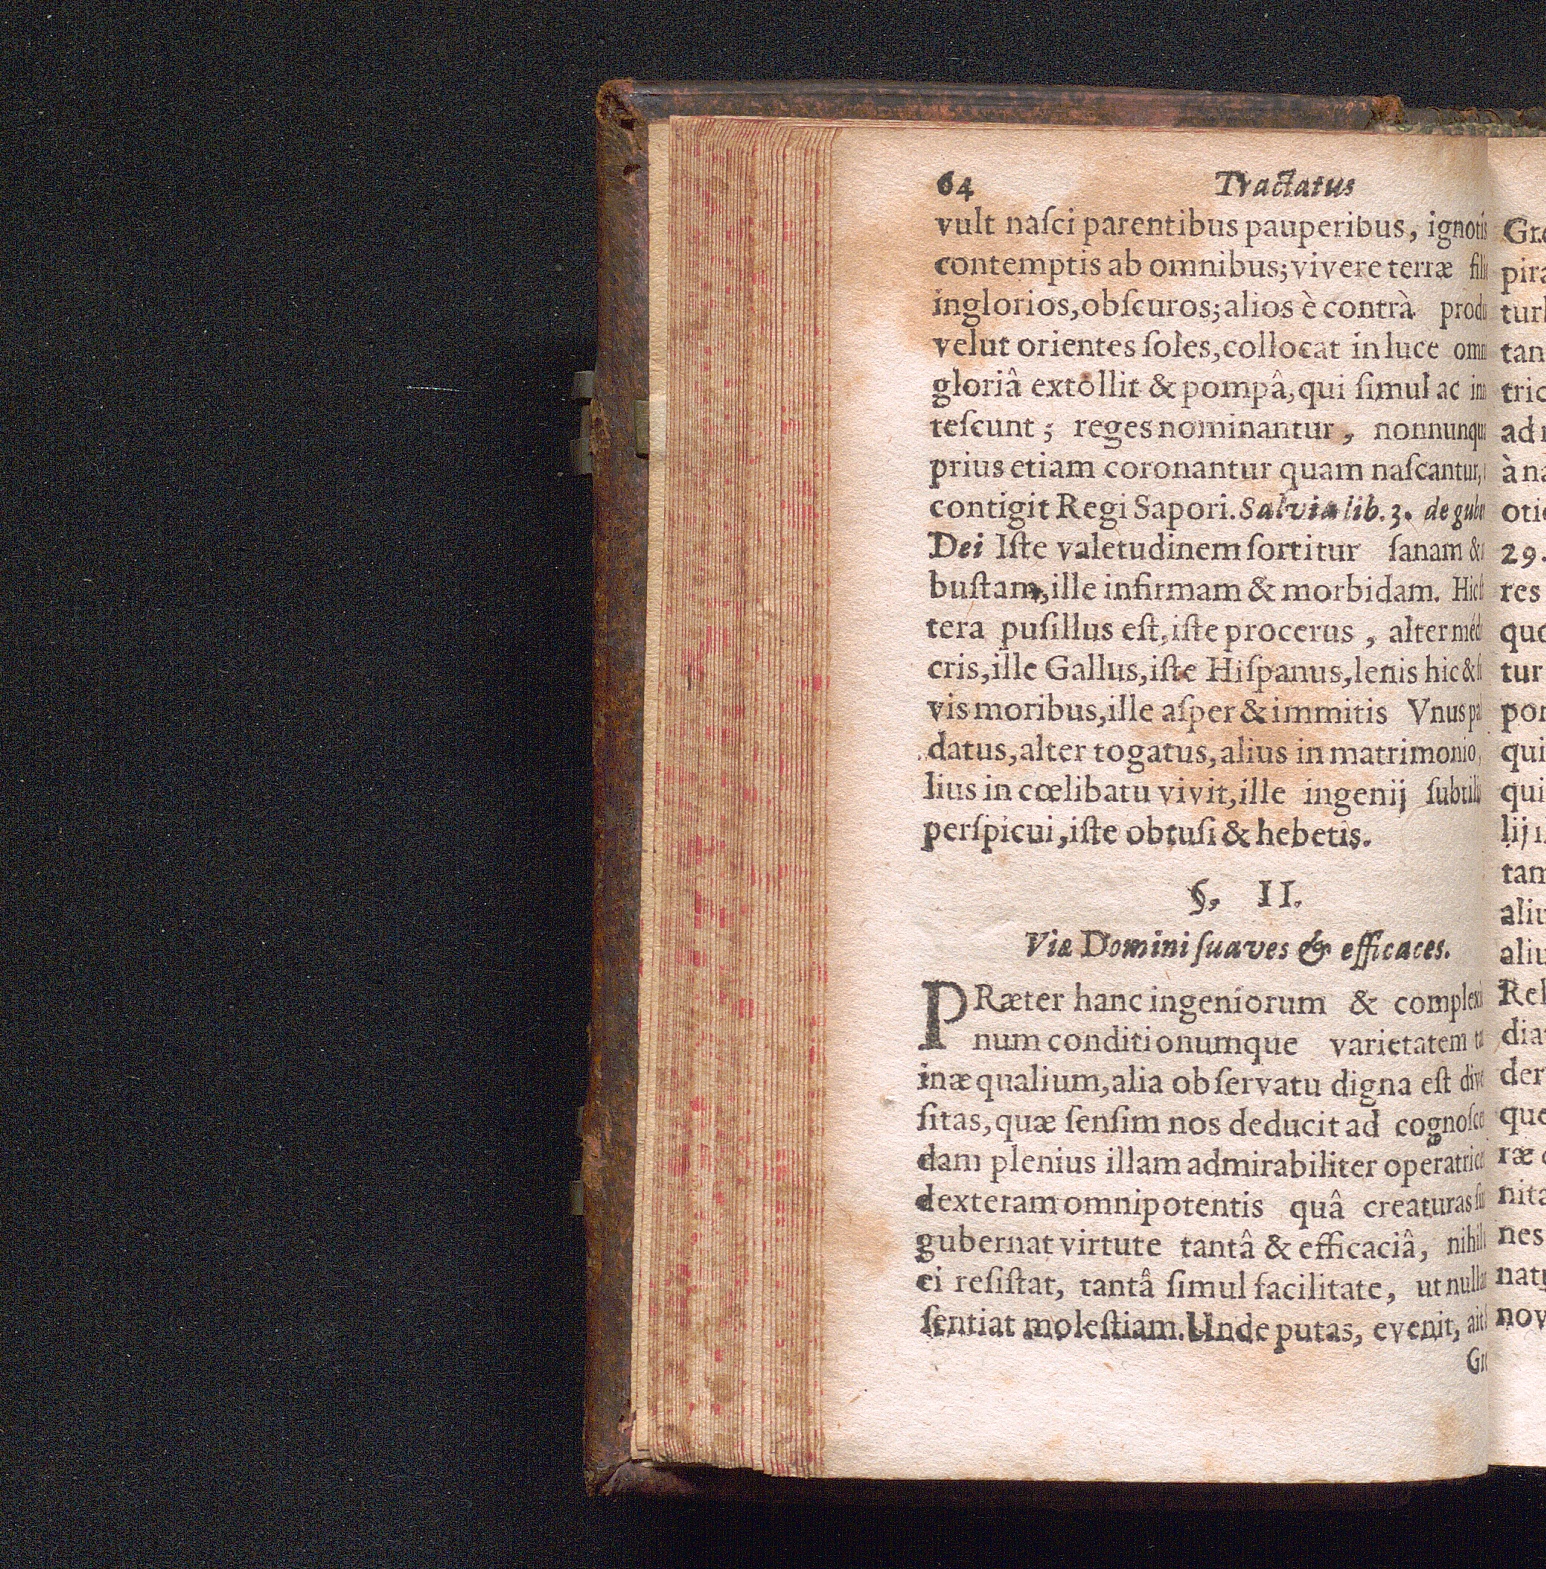 64 Tractatus
vult naſci parentibus pauperibus, ignotis
contemptis ab omnibus; vivere terræ
inglorios, obſcuros; alios è contrà
velut orientes ſoles, collocat in luce
gloriâ extollit & pompâ, qui ſimul ac
teſcunt; reges nominantur, nonnunqu
prius etiam coronantur quam naſcantur,
contigit Regi Sapori. Salvia lib. 3. de gube
Dei Iſte valetudinem ſortitur ſanam &
buſtam, ille infirmam & morbidam. Hic
tera puſillus eſt, iſte procerus, alter
cris, ille Gallus, iſte Hiſpanus, lenis hic &
vis moribus, ille aſper & immitis Vnus
datus, alter togatus, alius in matrimonio,
lius in cœlibatu vivit, ille ingenij ſubtili
perſpicui, iſte obtuſi & hebetis.
§, II.
Viæ Domini ſuaves & efficaces.
PRæter hanc ingeniorum & complexi
num conditionumque varietatem
inæqualium, alia obſervatu digna eſt dive
ſitas, quæ ſenſim nos deducit ad cognoſce
dam plenius illam admirabiliter operatrice
dexteram omnipotentis quâ creaturas
gubernat virtute tantâ & efficaciâ, nihil
ei reſiſtat, tantâ ſimul facilitate, ut nulla
ſentiat moleſtiam. Unde putas, evenit, ait
Gre
pira
tur
tan
tric
ad
à na
otio
29.
res
que
tur
por
qui
qui
lij
tam
aliu
aliu
Rel
dia
der
que
ræ
nita
nes
natu
nov